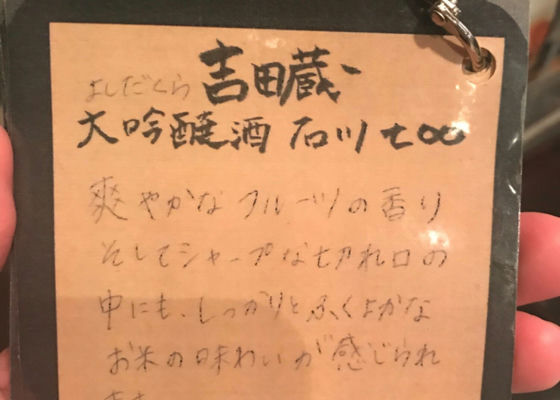 よしだくら 吉田蔵
大吟醸酒 石川 700
爽やかなフルーツの香り
そしてシャープな切れ口の
中にも、しっかりとふくよかな
お米の味わいが感じられ
ます